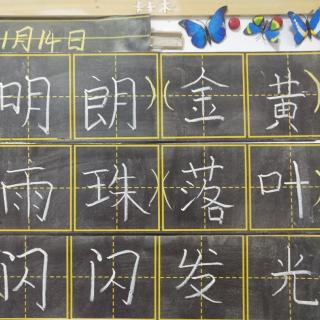 1月14日
明朗)(金黄)
雨珠)(落叶)
闪闪发光